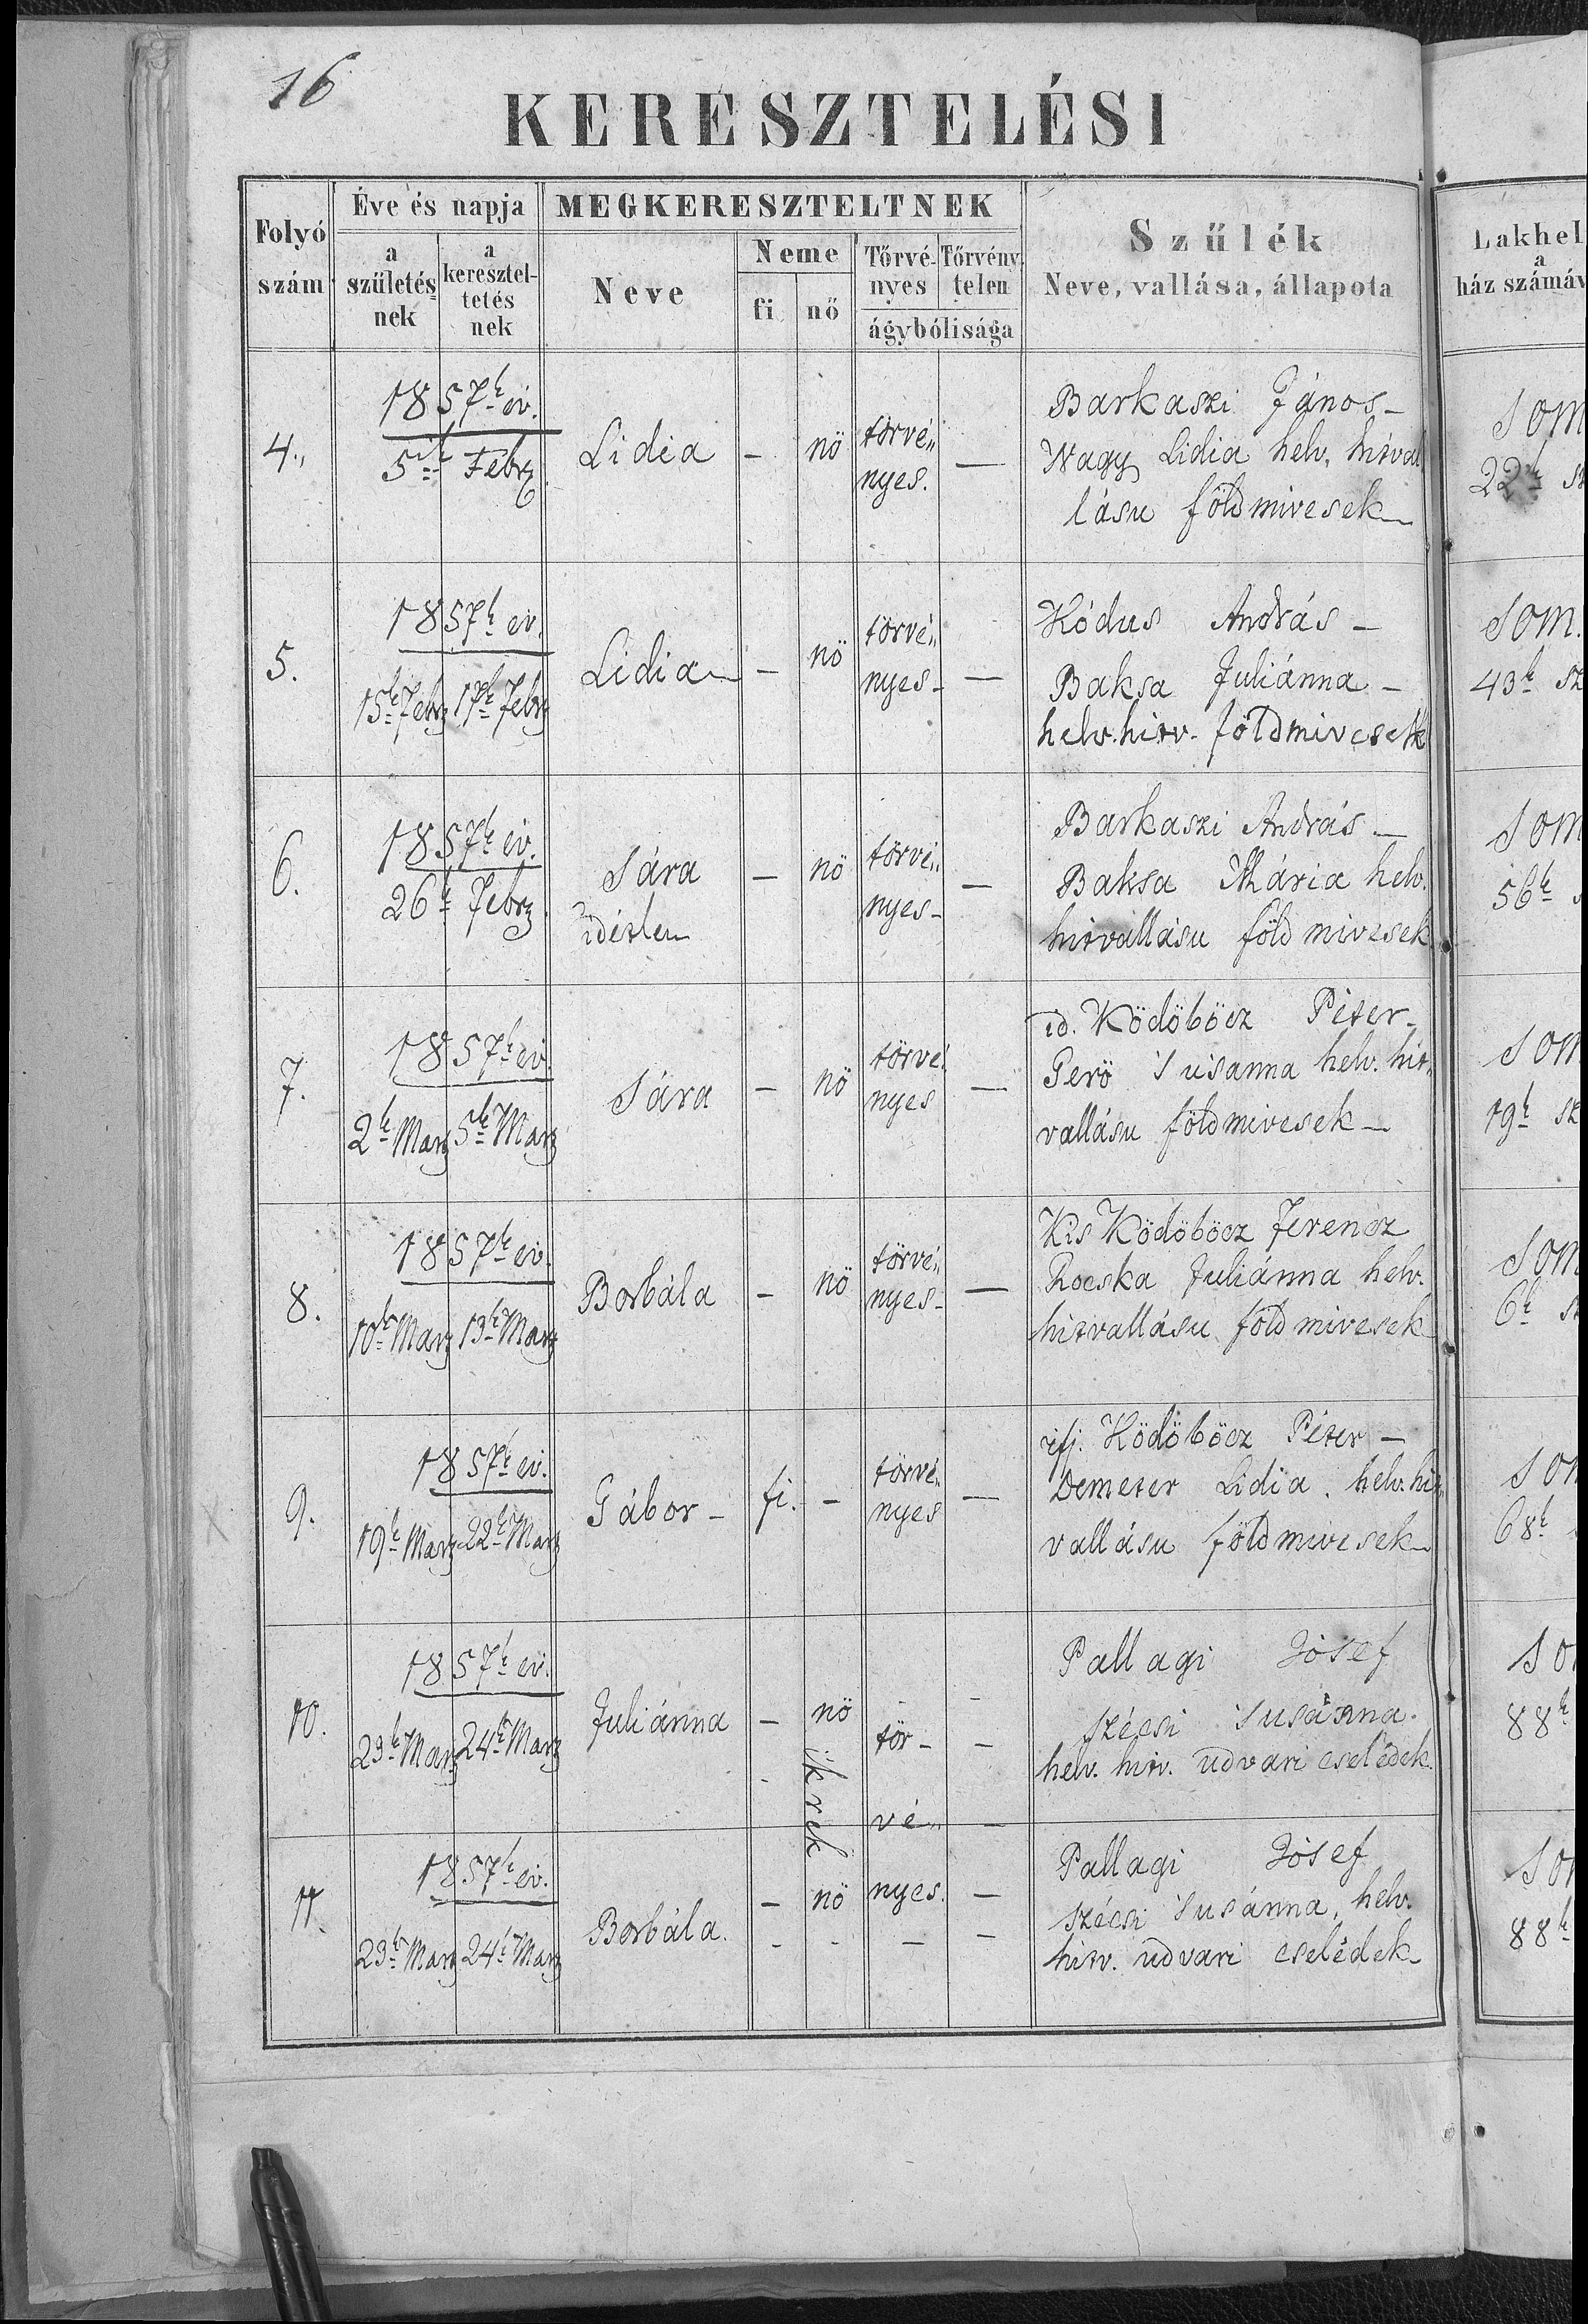 16
KERESZTELÉSI
Folyó szám
Éve és napja
a születés nek
a keresztel- tetés nek
MEGKERESZTELTNEK
Neve
Neme
fi
nő
Törvé- nyes
Törvény telen
ágybólisága
Szűlék
Neve, vallása, állapota
Lakhel
a
ház számáv
4.,
1857k év.
5ik Febr
Lidia - nö törvé„ —
nyes.
Barkaszi János -
Nagy Lidia helv. hitval
lásu földmivesek
Som
22k sz
5.
1857k év.
15k Febr 17k Febr
Lidia - nö törvé„ —
nyes -
Kódus András -
Baksa Juliánna -
helv. hitv. földmivesek
Som.
43k sz
6.
1857k év.
26k Febr
Sára - nö törvé„ —
idétlen nyes -
Barkaszi András -
Baksa Mária helv.
hitvallásu földmivesek
Som
56k s
7.
1857k év.
2k Marz 5k Marz
Sára - nö törvé„ —
nyes
id. Ködöböcz Péter -
Perö Susanna helv. hit„
vallásu földmivesek -
Som
19k sz
8.
1857k év.
10k Marz 13k Marz
Borbála - nö törvé„ —
nyes -
Kis Ködöböcz Ferencz
Rocska Juliánna helv.
hitvallásu földmivesek
Som
6k sz
9.
1857k év.
19k Marz 22k Marz
Gábor - fi. - törvé„ —
nyes
ifj. Ködöböcz Péter -
Demeter Lidia. helv. hit„
vallásu földmivesek
Som
68k
10.
1857k év.
23k Marz 24k Marz
Juliánna - nö tör - -
Pallagi Jósef
Szécsi Susánna.
helv. hitv. udvari cselédek.
So
88k
ikrek
vé„ -
11.
1857k év.
23k Marz 24k Marz
Borbála. - nö nyes. -
Pallagi Jósef
Szécsi Susánna, helv.
hitv. udvari cselédek -
So
88k